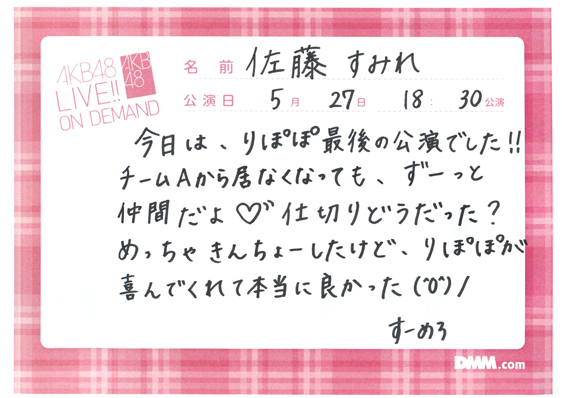 AKB48
LIVE!!
ON DEMAND
AKB
48
名前 佐藤 すみれ
公演日 5月 27日 18:30公演
今日は、りぽぽ最後の公演でした!!
チームAから居なくなっても、ずーっと
仲間だよ♡゛仕切りどうだった?
めっちゃきんちょーしたけど、りぽぽが
喜んでくれて本当に良かった(^o^)/
すーめろ
DMM.com